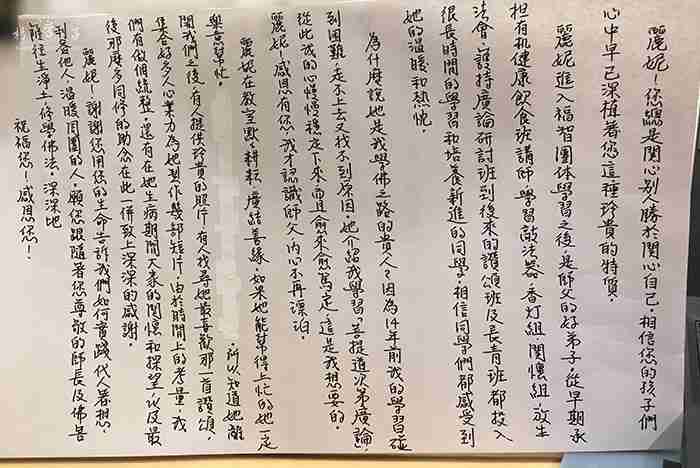 麗妮!您總是關心別人勝於關心自己,相信您的孩子們
心中早已深植著您這種珍貴的特質。
麗妮進入福智團体學習之後,是師父的好弟子,從早期承
担有机健康飲食班講師、學習敲法器、香灯組、關懷組、放生
法會、護持廣論研討班到後來的讚頌班及長青班都投入
很長時間的學習和培養新進的同學,相信同學們都感受到
她的溫暖和熱忱。
為什麼說她是我學佛之路的貴人?因為14年前我的學習碰
到困難,走不上去又找不到原因,她介紹我學習菩提道次第廣論,
從此我的心慢慢穩定下來,而這愈來愈篤定,這是我想要的。
麗妮!感恩有您,我才認識師父,內心不再漂泊。
麗妮在教室默默耕耘,廣結善緣,如果她能幫得上忙的她一定
樂意幫忙。
所以知道她離
開我們之後,有人提供珍貴的照片,有人找尋她最喜歡那一首讚頌,
集合好多人心業力為她製作幾部短片,由於時間上的考量,我
們有做個統整,還有在她生病期間大家的關懷和探望以及最
後那麼多同修的助念在此一併致上深深的感謝。
麗妮!謝謝您用您的生命告訴我們如何實踐代人著想,
利益他人,溫暖周圍的人,願您跟隨著您尊敬的師長及佛菩
薩往生淨土修學佛法,深深地
祝福您!感恩您!